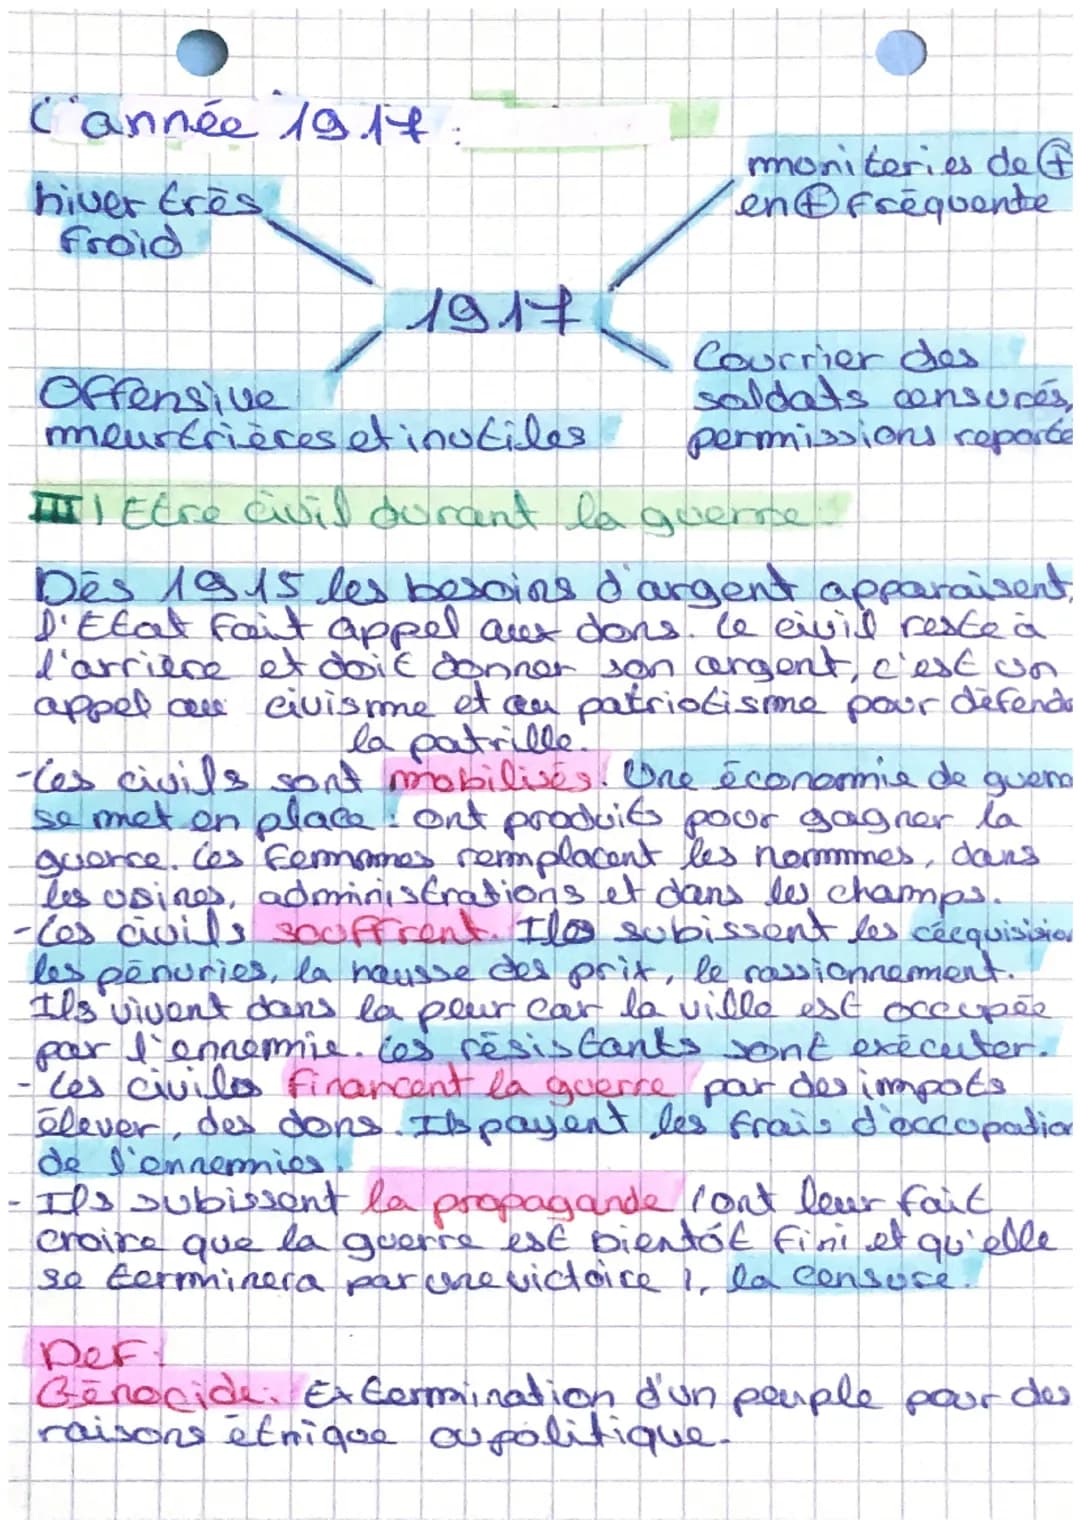 L'année 1917 :
hiver très
froid
moniteries de +
en + fréquente
1917
Offensive
meurtrières et inutiles
Courrier des
soldats censurés,
permissions reporté
III) Etre civil durant la guerre
Dès 1915 les besoins d'argent apparaisent,
l'Etat fait appel aux dons. Le civil reste à
l'arrière et doit donner son argent, c'est un
appel au civisme et au patriotisme pour défend
la patrille.
-Les civils sont mobilisés. Une économie de guerr
se met en place : ont produits pour gagner la
guerre. Les femmes remplacent les hommes, dans
les usines, administrations et dans les champs.
-Les civils souffrent. Ils subissent les
les pénuries, la hausse des prix, le rassionnement.
Ils vivent dans la peur car la ville est occupée
par l'ennemie. Les résistants sont exécuter.
- Les civiles financent la guerre par des impots
élever, des dons. Ils payent les frais d'occupation
de l'ennemies.
- Ils subissent la propagande (ont leur fait
croire que la guerre est bientôt fini et qu'elle
se terminera par une victoire ), la censure.
Def:
Génocide: Extermination d'un peuple pour des
raisons étnique ou politique.